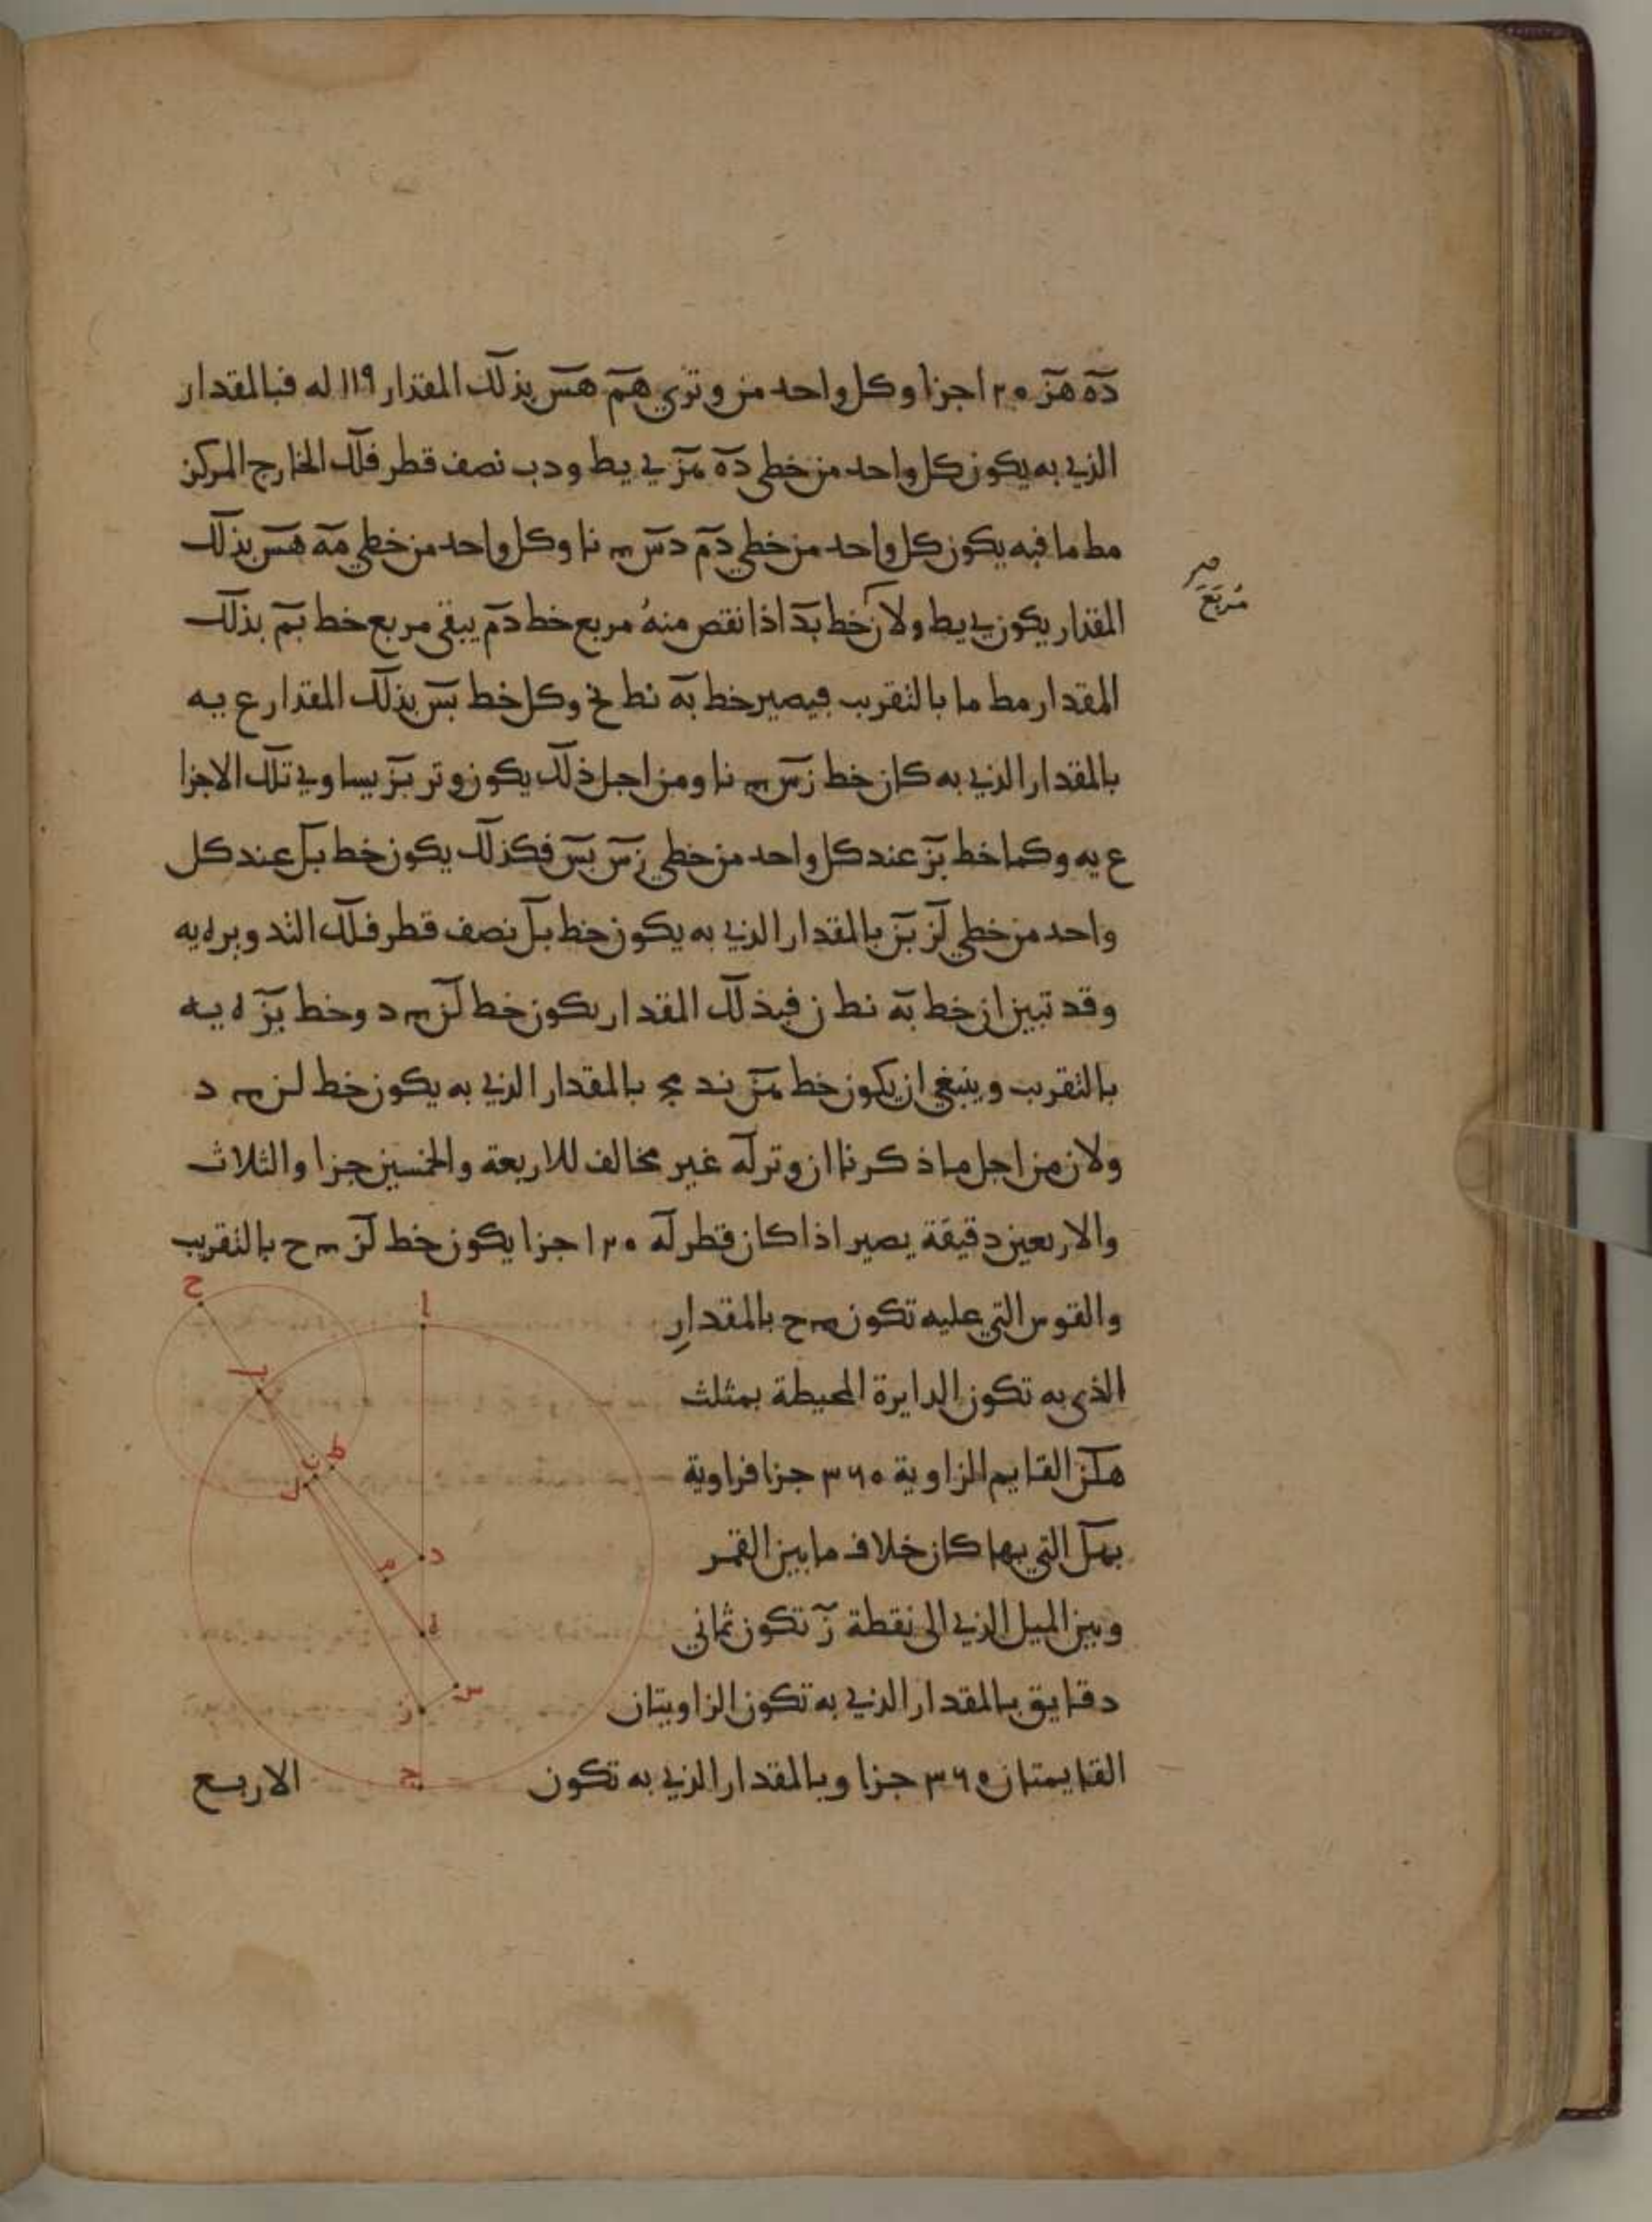 ده هز ١٢٠ اجزا وكل واحد من وتري هم هس بذلك المقدار ١١٩ له فبالمقدار
الذي به يكون كل واحد من خطي ده هز ي يط ودب نصف قطر فلك الخارج المركز
مط ما فبه يكون كل واحد من خطي دم دس نا وكل واحد من خطي مه هس بذلك
مربع
المقدار يكون ي يط ولان خط بد اذا نقص منه مربع خط دم يبقى مربع خط بم بذلك
المقدار مط ما بالتقريب فيصير خط به نط وكل خط بس بذلك المقدار ع يه
بالمقدار الذي به كان خط زس نا ومن اجل ذلك يكون وتر بز يساوي تلك الاجزا
ع يه وكما خط بز عند كل واحد من خطي زس بس فكذلك يكون خط بل عند كل
واحد من خطي لز بز بالمقدار الذي به يكون خط بل نصف قطر فلك التدوير ه يه
وقد تبين ان خط به نط ز فبذلك المقدار يكون خط لز د وخط بز ه يه
بالتقريب وينبغي ان يكون خط هز ند مج بالمقدار الذي به يكون خط لز د
ولان من اجل ما ذكرنا ان وتر له غير مخالف للاربعة والخمسين جزا والثلاث
والاربعين دقيقة يصير اذا كان قطر له ١٢٠ جزا يكون خط لز ح بالتقريب
والقوس التي عليه تكون ح بالمقدار
الذي به تكون الدايرة المحيطة بمثلث
القايم الزاوية ٣٦٠ جزا فزاوية
بهل التي بها كان خلاف ما بين القمر
وبين الميل الذي الى نقطة ز تكون ثماني
دقايق بالمقدار الذي به تكون الزاويتان
القايمتان ٣٦٠ جزا وبالمقدار الذي به تكون
الاربع
ح
ا
ب
ك
ل
د
م
ه
س
ز
ج